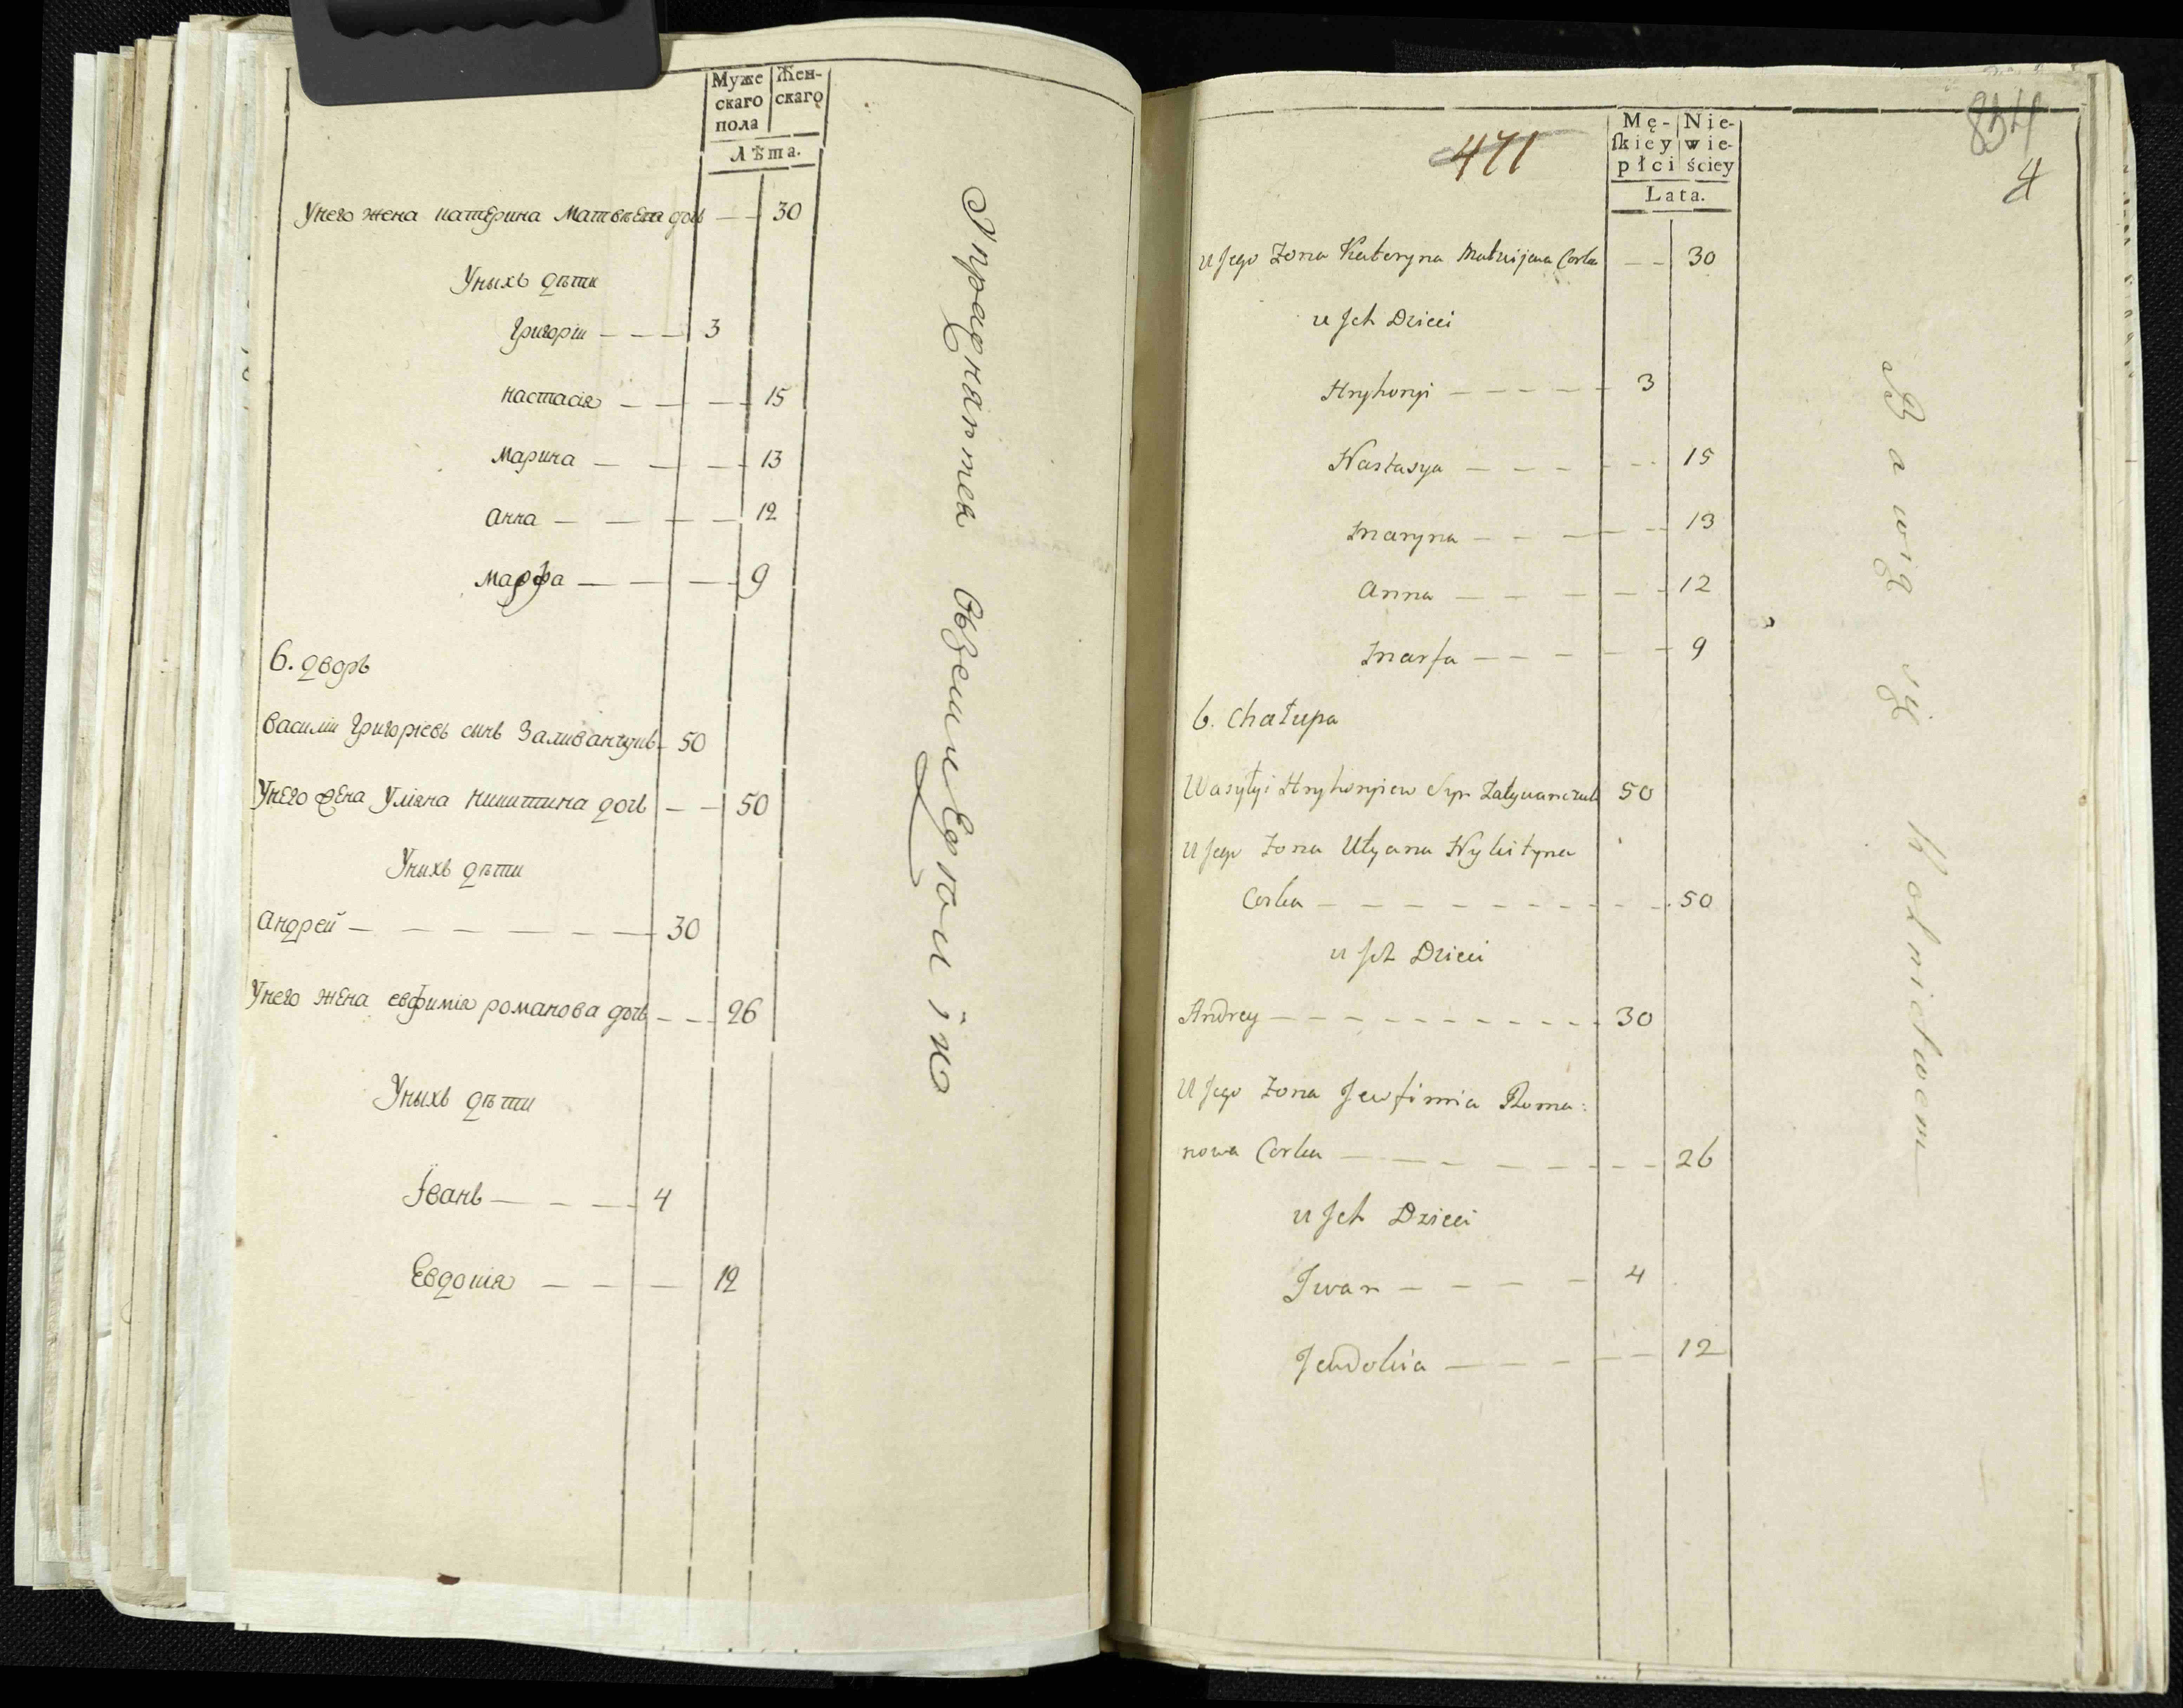 Муже
скаго
пола
Жен-
скаго
Лѣта.
Унего жена катерина Матвѣева дочь — — 30
Уныхъ дѣти
Григоріи — — — 3
настасія — — — 15
Марина — — — 13
анна — — — — 12
Марфа — — — 9
6. дворъ
Василіи Григорієвъ сынъ Заливанчукъ 50
Унего жена Уліяна никитина дочь — — 50
Уныхъ дѣти
андрей — — — — — — 30
Унего жена евфимія романова дочь — — 26
Уныхъ дѣти
Іванъ — — — 4
Евдокія — — — 12
Упражняются
471
834
4
Mę-
ſkiey
płci
Nie-
wie-
ściey
Lata.
u Jego Zona Kateryna Matwijewa Corka — — 30
u Jch Dzieci
Hryhoryi — — — — — 3
Nastasya — — — — — 15
Maryna — — — — — 13
Anna — — — — — 12
Marfa — — — — — 9
6. Chałupa
Wasyłyi Hryhoryiew Syn Załywanczuk 50
u Jego Zona Ułyana Nykityna
Corka — — — — — — — — — 50
u Jch Dzieci
Andrey — — — — — — — — — 30
U Jego Zona Jewfimia Roma:
nowa Corka — — — — — — — — 26
u Jch Dzieci
Jwan — — — — 4
Jewdokia — — — — — 12
Bawią się Rolnictwem